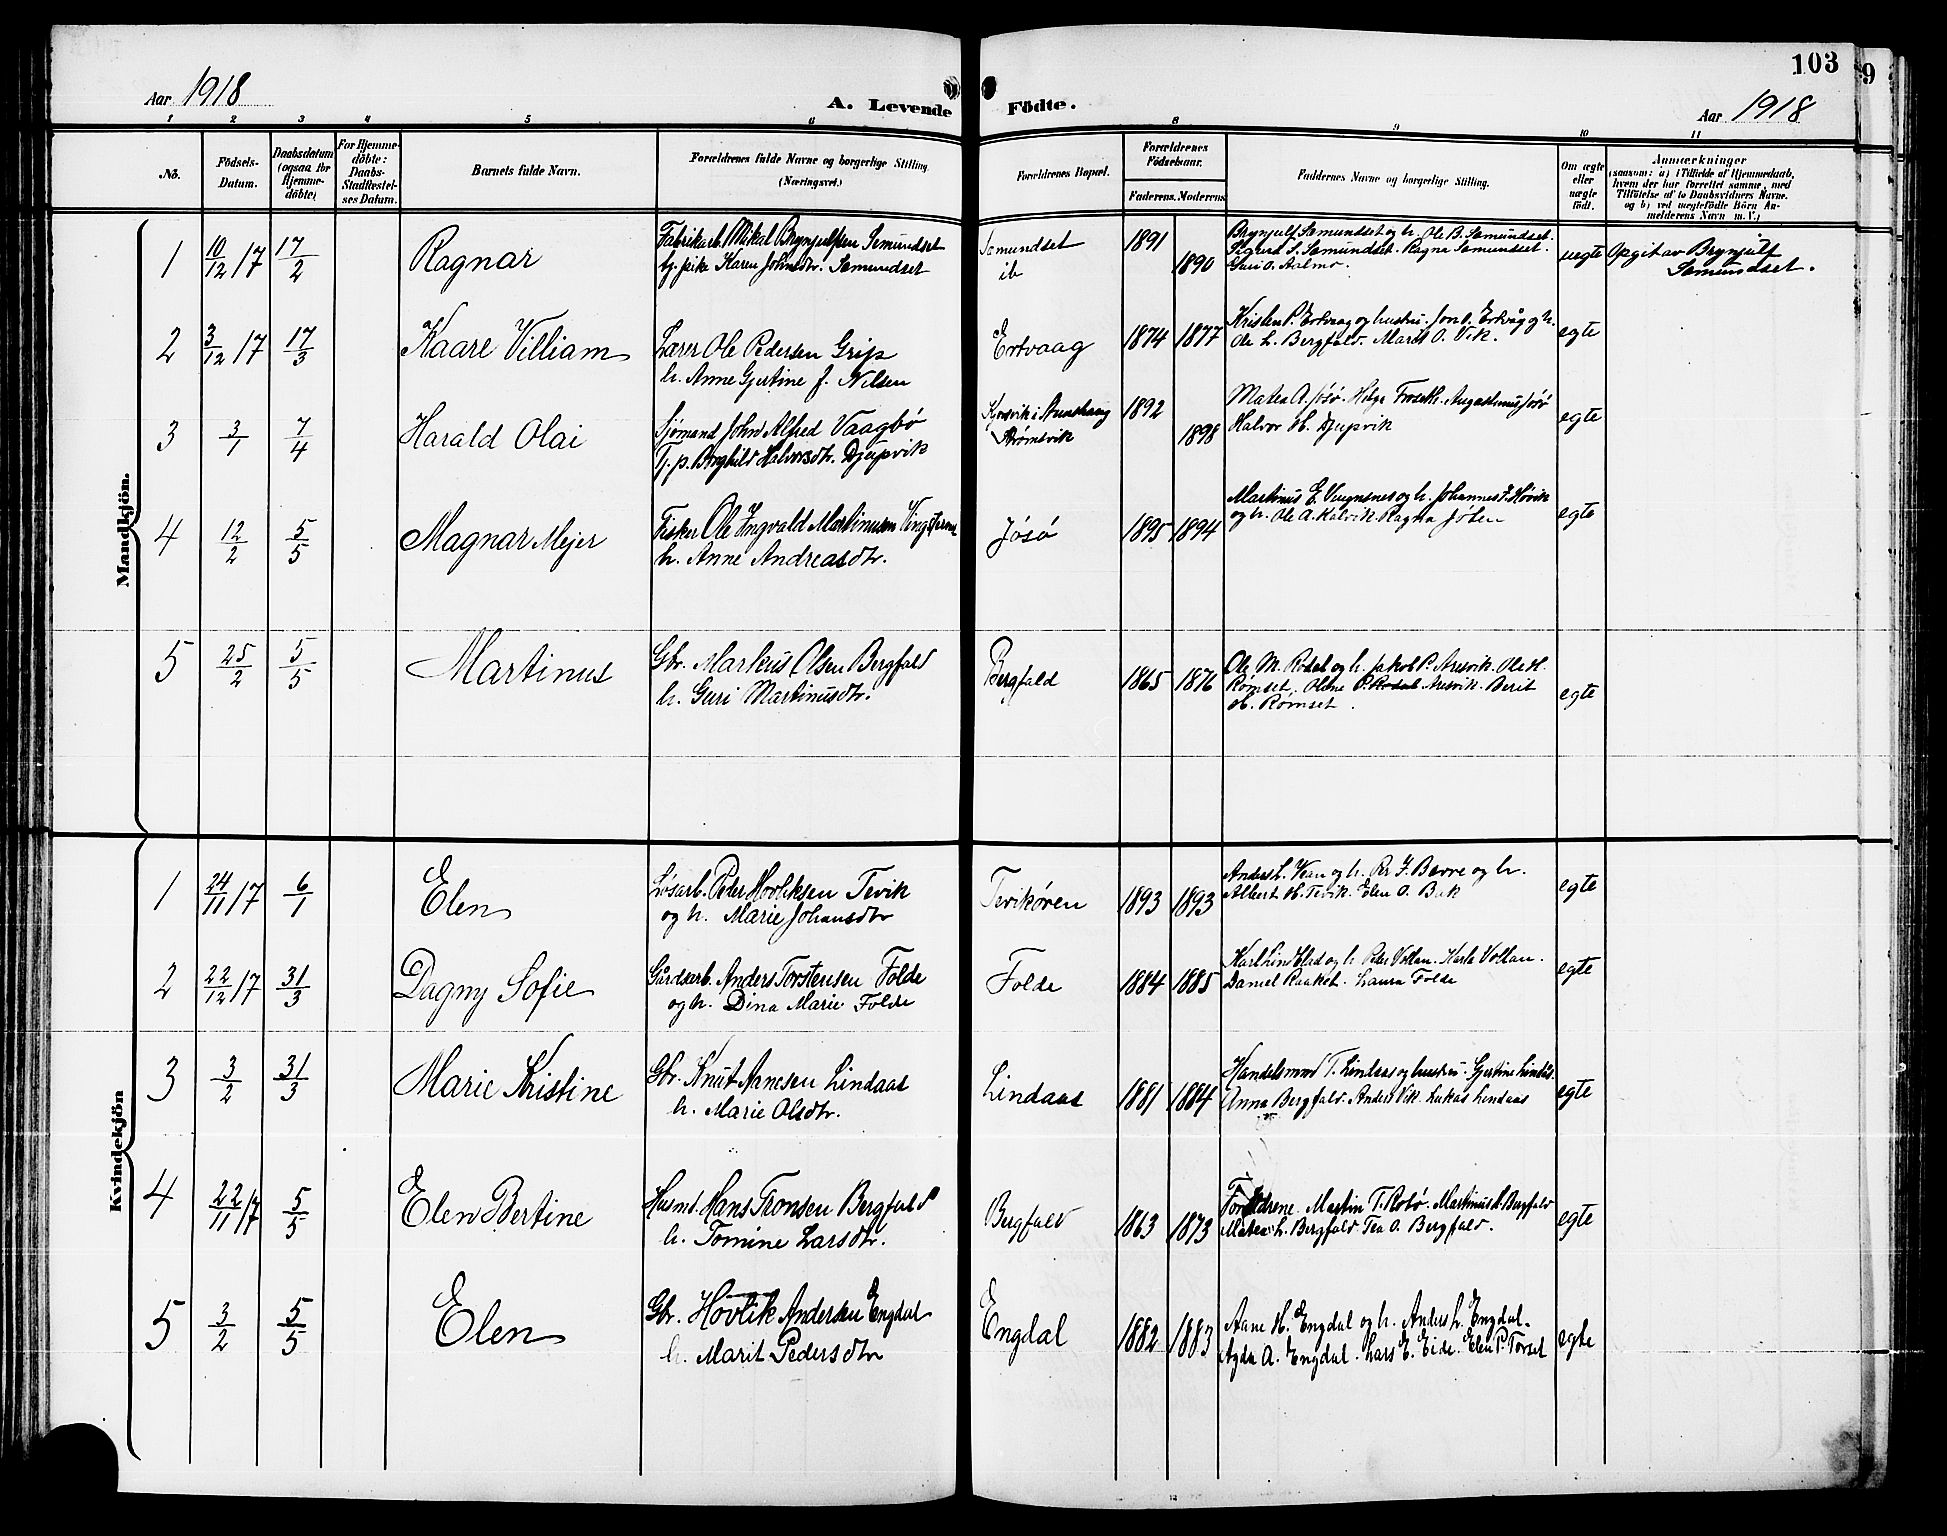 103
9
Aar 1918
A. Levende Födte.
Aar 1918
1 2 3 4 5 6 8 9 10 11
No.
Födsels-Datum.
Daabsdatum (ogsaa for Hjemme-döbte)
For Hjemme-döbte: Daabs-Stadfæstel-ses Datum.
Barnets fulde Navn.
Forældrenes fulde Navne og borgerlige Stilling
(Næringsvei.)
Forældrenes Bopæl.
Forældrenes Födselsaar.
Faderens. Moderens.
Faddernes Navne og borgerlige Stilling.
Om ægte eller uægte födt.
Anmærkninger
(saasom: a) i Tilfælde af Hjemmedaab,
hvem der har forrettet samme, med
Tilföielse af to Daabsvidners Navne.
og b) ved uægtefödte Börn An-
melderens Navn m. V.)
Mandkjön.
1 10/12 17 17/2 Ragnar
Fabrikarb. Mikal Brynjulfsen Semundset
tj. pike Karen Johnsdtr. Semundset
Semundset
ib
1891 1890
Brynjulf Semundset og h. Ole B. Semundset.
Sigurd S. Semundset. Ragna Semundset.
Guri O. Aalmo.
uegte
Opgit av Brynjulf
Semundset.
2 3/12 17 17/3 Kaare Villiam
Lærer Ole Pedersen Grip
h. Anne Gjertine f. Nilsen
Ertvaag
1874 1877
Kristen P. Ertvaag og hustru. Jon O. Ertvåg og h.
Ole L. Bergfald. Marit O. Vik.
egte
3 3/1 7/4 Harald Olai
Sjömand John Alfred Vaagbø
Tj. p. Borghild Halvorsdtr. Djupvik
Strømsvik
1892 1898
Matea A. Jøsø. Helge Augustinus Jøsø
Halvor H. Djupvik
egte
4 12/2 5/5 Magnar Mejer
Fisker Ole Ingvald Martinusen
h. Anne Andreasdtr.
Jøsø
1895 1894
Martinus E. og h. Johannes J. Høvik
og h. Ole A. Kalvik Ragna Jøsen
egte
5 25/2 5/5 Martinus
Gbr. Markus Olsen Bergfald
h. Guri Martinusdtr.
Bergfald
1865 1876
Ole M. Rodal og h. Jakob P. Aresvik. Ole H.
Rømset. Oline P. Rodal Aresvik. Berit
H. Rømset.
egte
Kvindekjön
1 24/11 17 6/1 Elen
Løsarb. Peter Hovliksen Tevik
og h. Marie Johansdtr
Tevikøren
1893 1893
Anders L. Vean og h. Per J. Bævre og h.
Albert H. Tevik. Elen O. Bak
egte
2 22/12 17 31/3 Dagny Sofie
Gårdsarb. Anders Torstensen Folde
og h. Dina Marie Folde
Folde
1884 1885
Karl Lindblad og h. Peter Vollan. Karle Vollan.
Daniel Raaket. Laura Folde
egte
3 3/2 31/3 Marie Kristine
Gbr. Knut Aanesen Lindaas
h. Marie Olsdtr.
Lindaas
1881 1884
Handelsmand T. Lindaas og hustru. Gjertine Lindås.
Anna Bergfald. Anders Vik. Lukas Lindaas
egte
4 22/11 17 5/5 Elen Bertine
Husmd. Hans Tronsen Bergfald
h. Tomine Larsdtr.
Bergfald
1863 1873
Forældrene. Martin T. Rotø. Martinus L. Bergfald
Matea L. Bergfald Tea O. Bergfald.
egte
5 3/2 5/5 Elen
Gbr. Hovlik Andersen Engdal
h. Marit Pedersdtr
Engdal
1882 1883
Aane H. Engdal og h. Anders L. Engdal.
Agda A. Engdal. Lars E. Eide. Elen P. Torset
egte